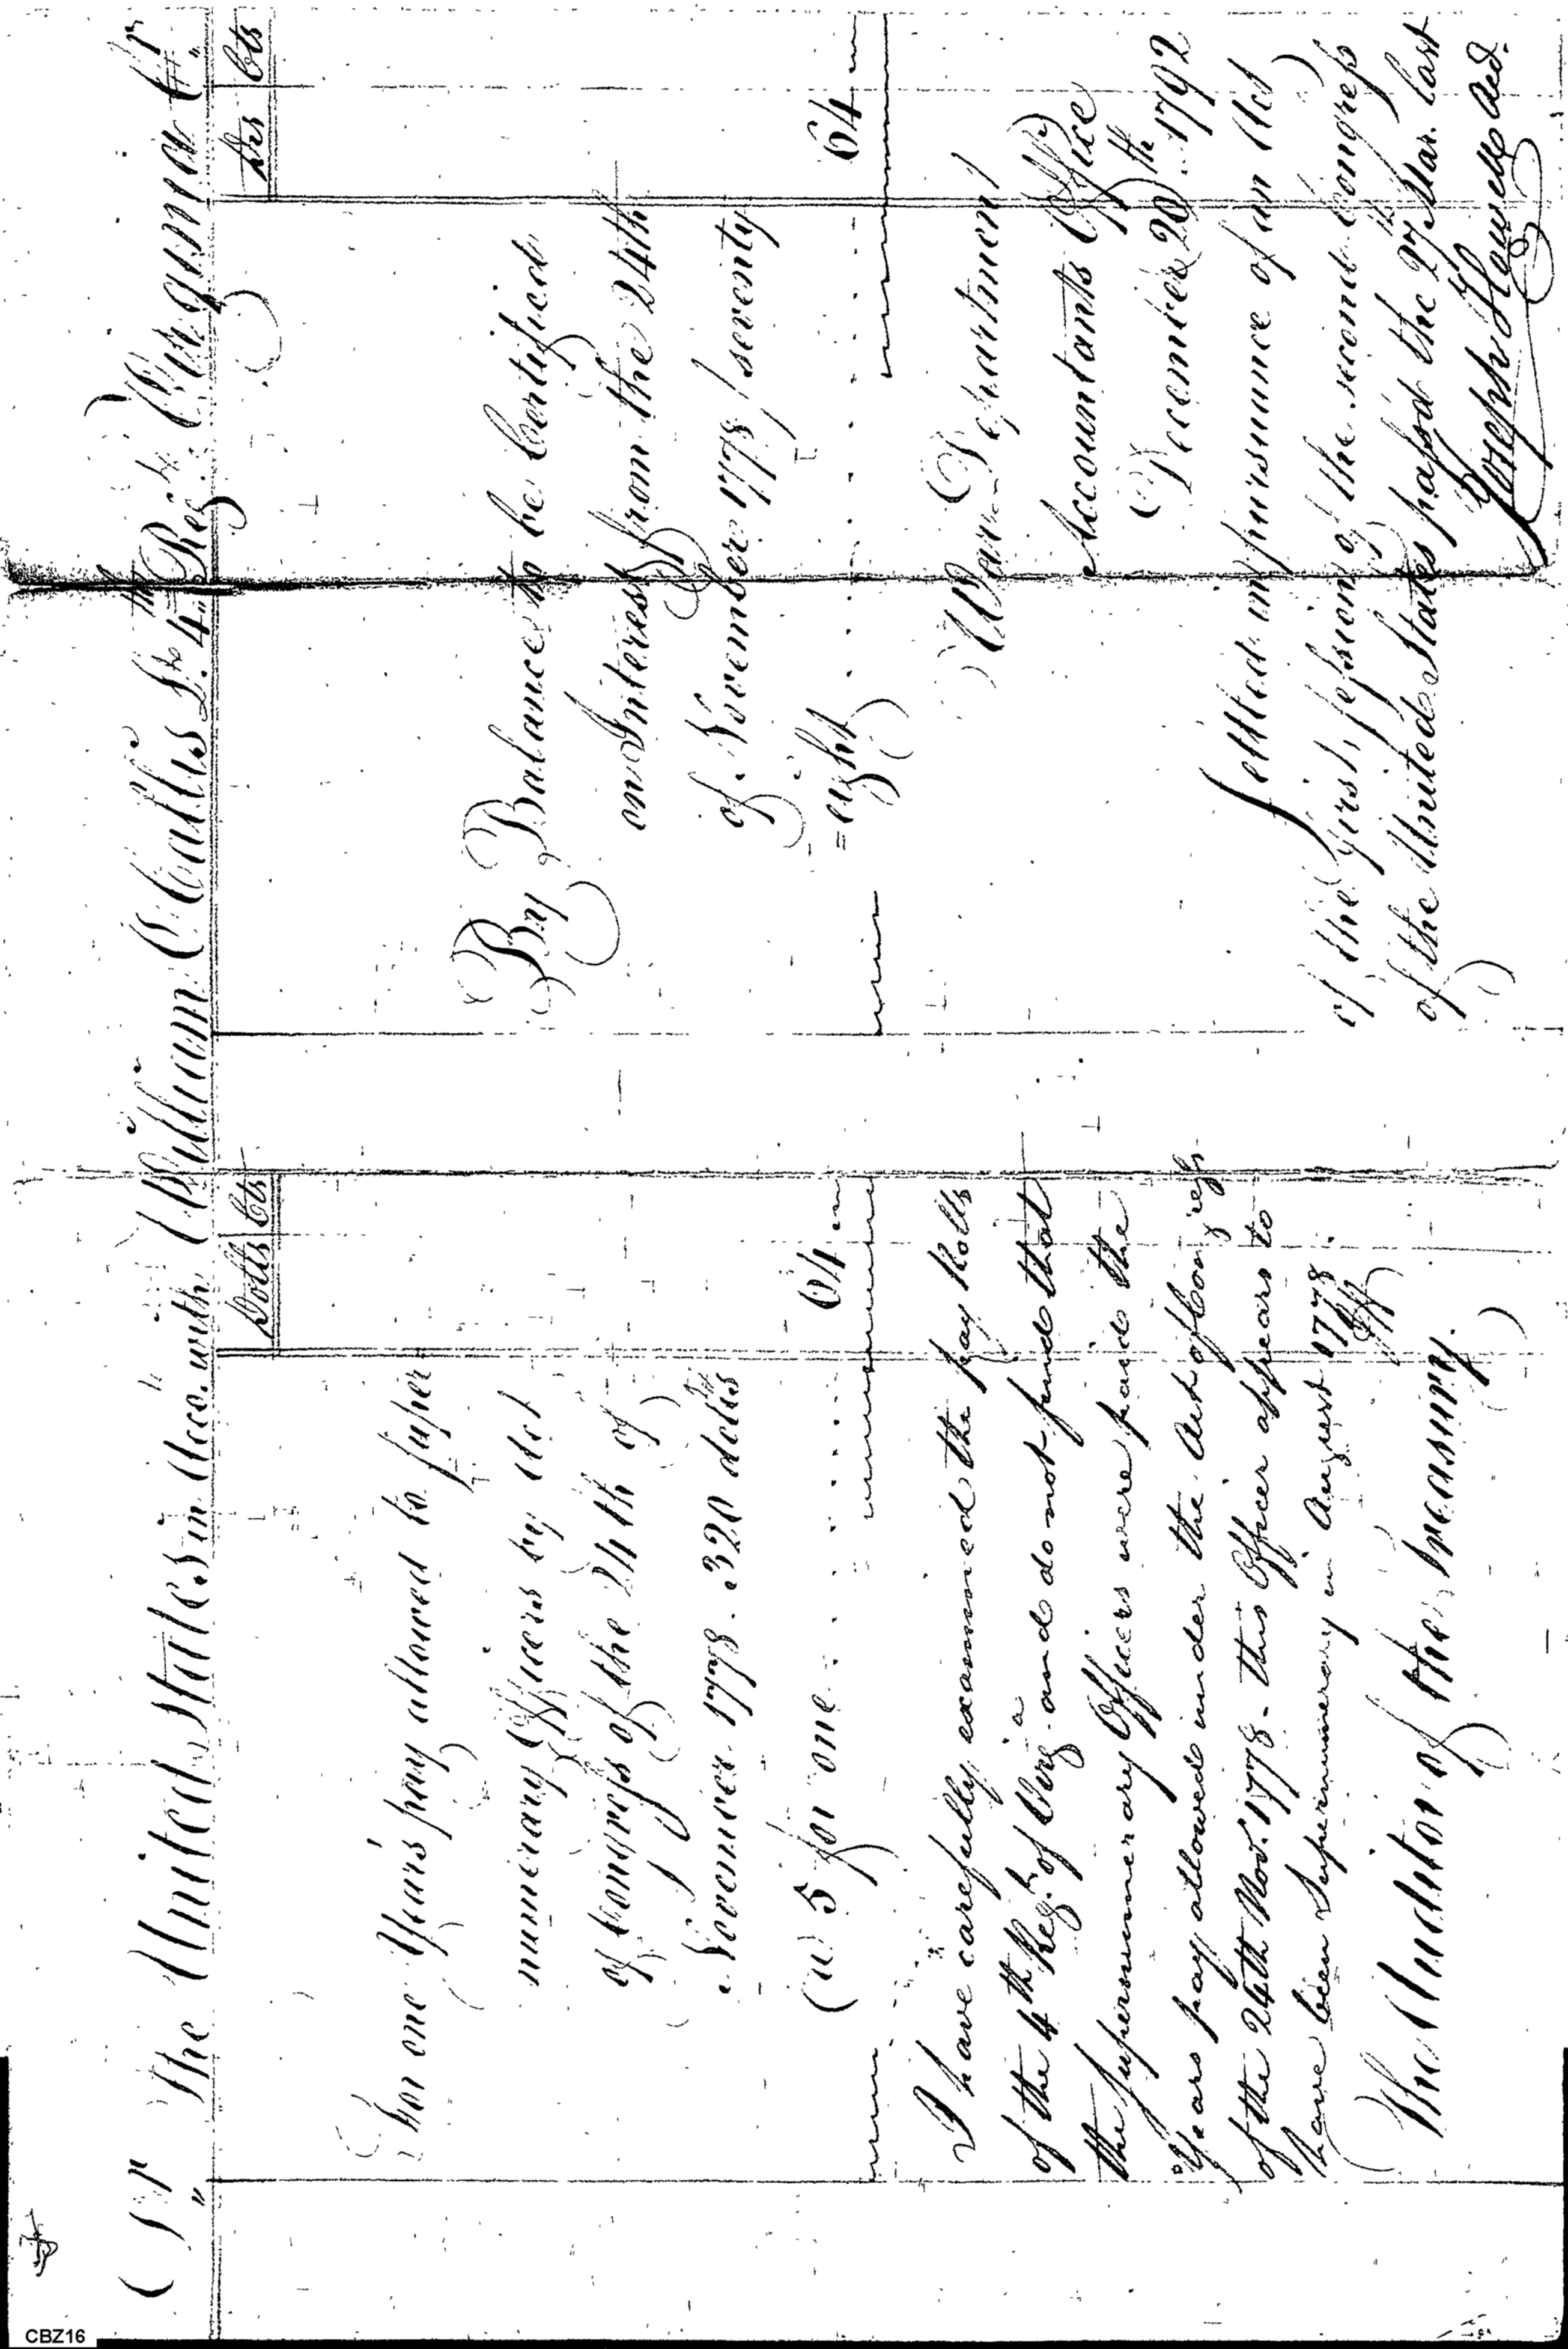 Dr The United States in Acco. with William O Callis Lt. 4th Regt. Virginia Cr
Dolls Cts
For one Years pay allowed to super-
numerary Officers by Act
of Congress of the 24th of
November 1778. 320 dolls
@ 5 for one 64
I have carefully examined the pay Rolls
of the 4th Regt. of Virga. and do not find that
the Supernumerary Officers were paid the
Years pay allowed under the Act of Congress
of the 24th Nov. 1778 - this Officer appears to
have been Supernumerary in August 1778.
The Auditor of the Treasury.
Drs Cts
By Balance to be Certified
on Interest from the 24th
of November 1778 / seventy
=eight 64
War Department
Accountants Office
December 20th 1792
Settled in pursuance of an Act
of the first session of the second Congress
of the United States passed the 27th Mar. last
Joseph Howell Act.
CBZ16